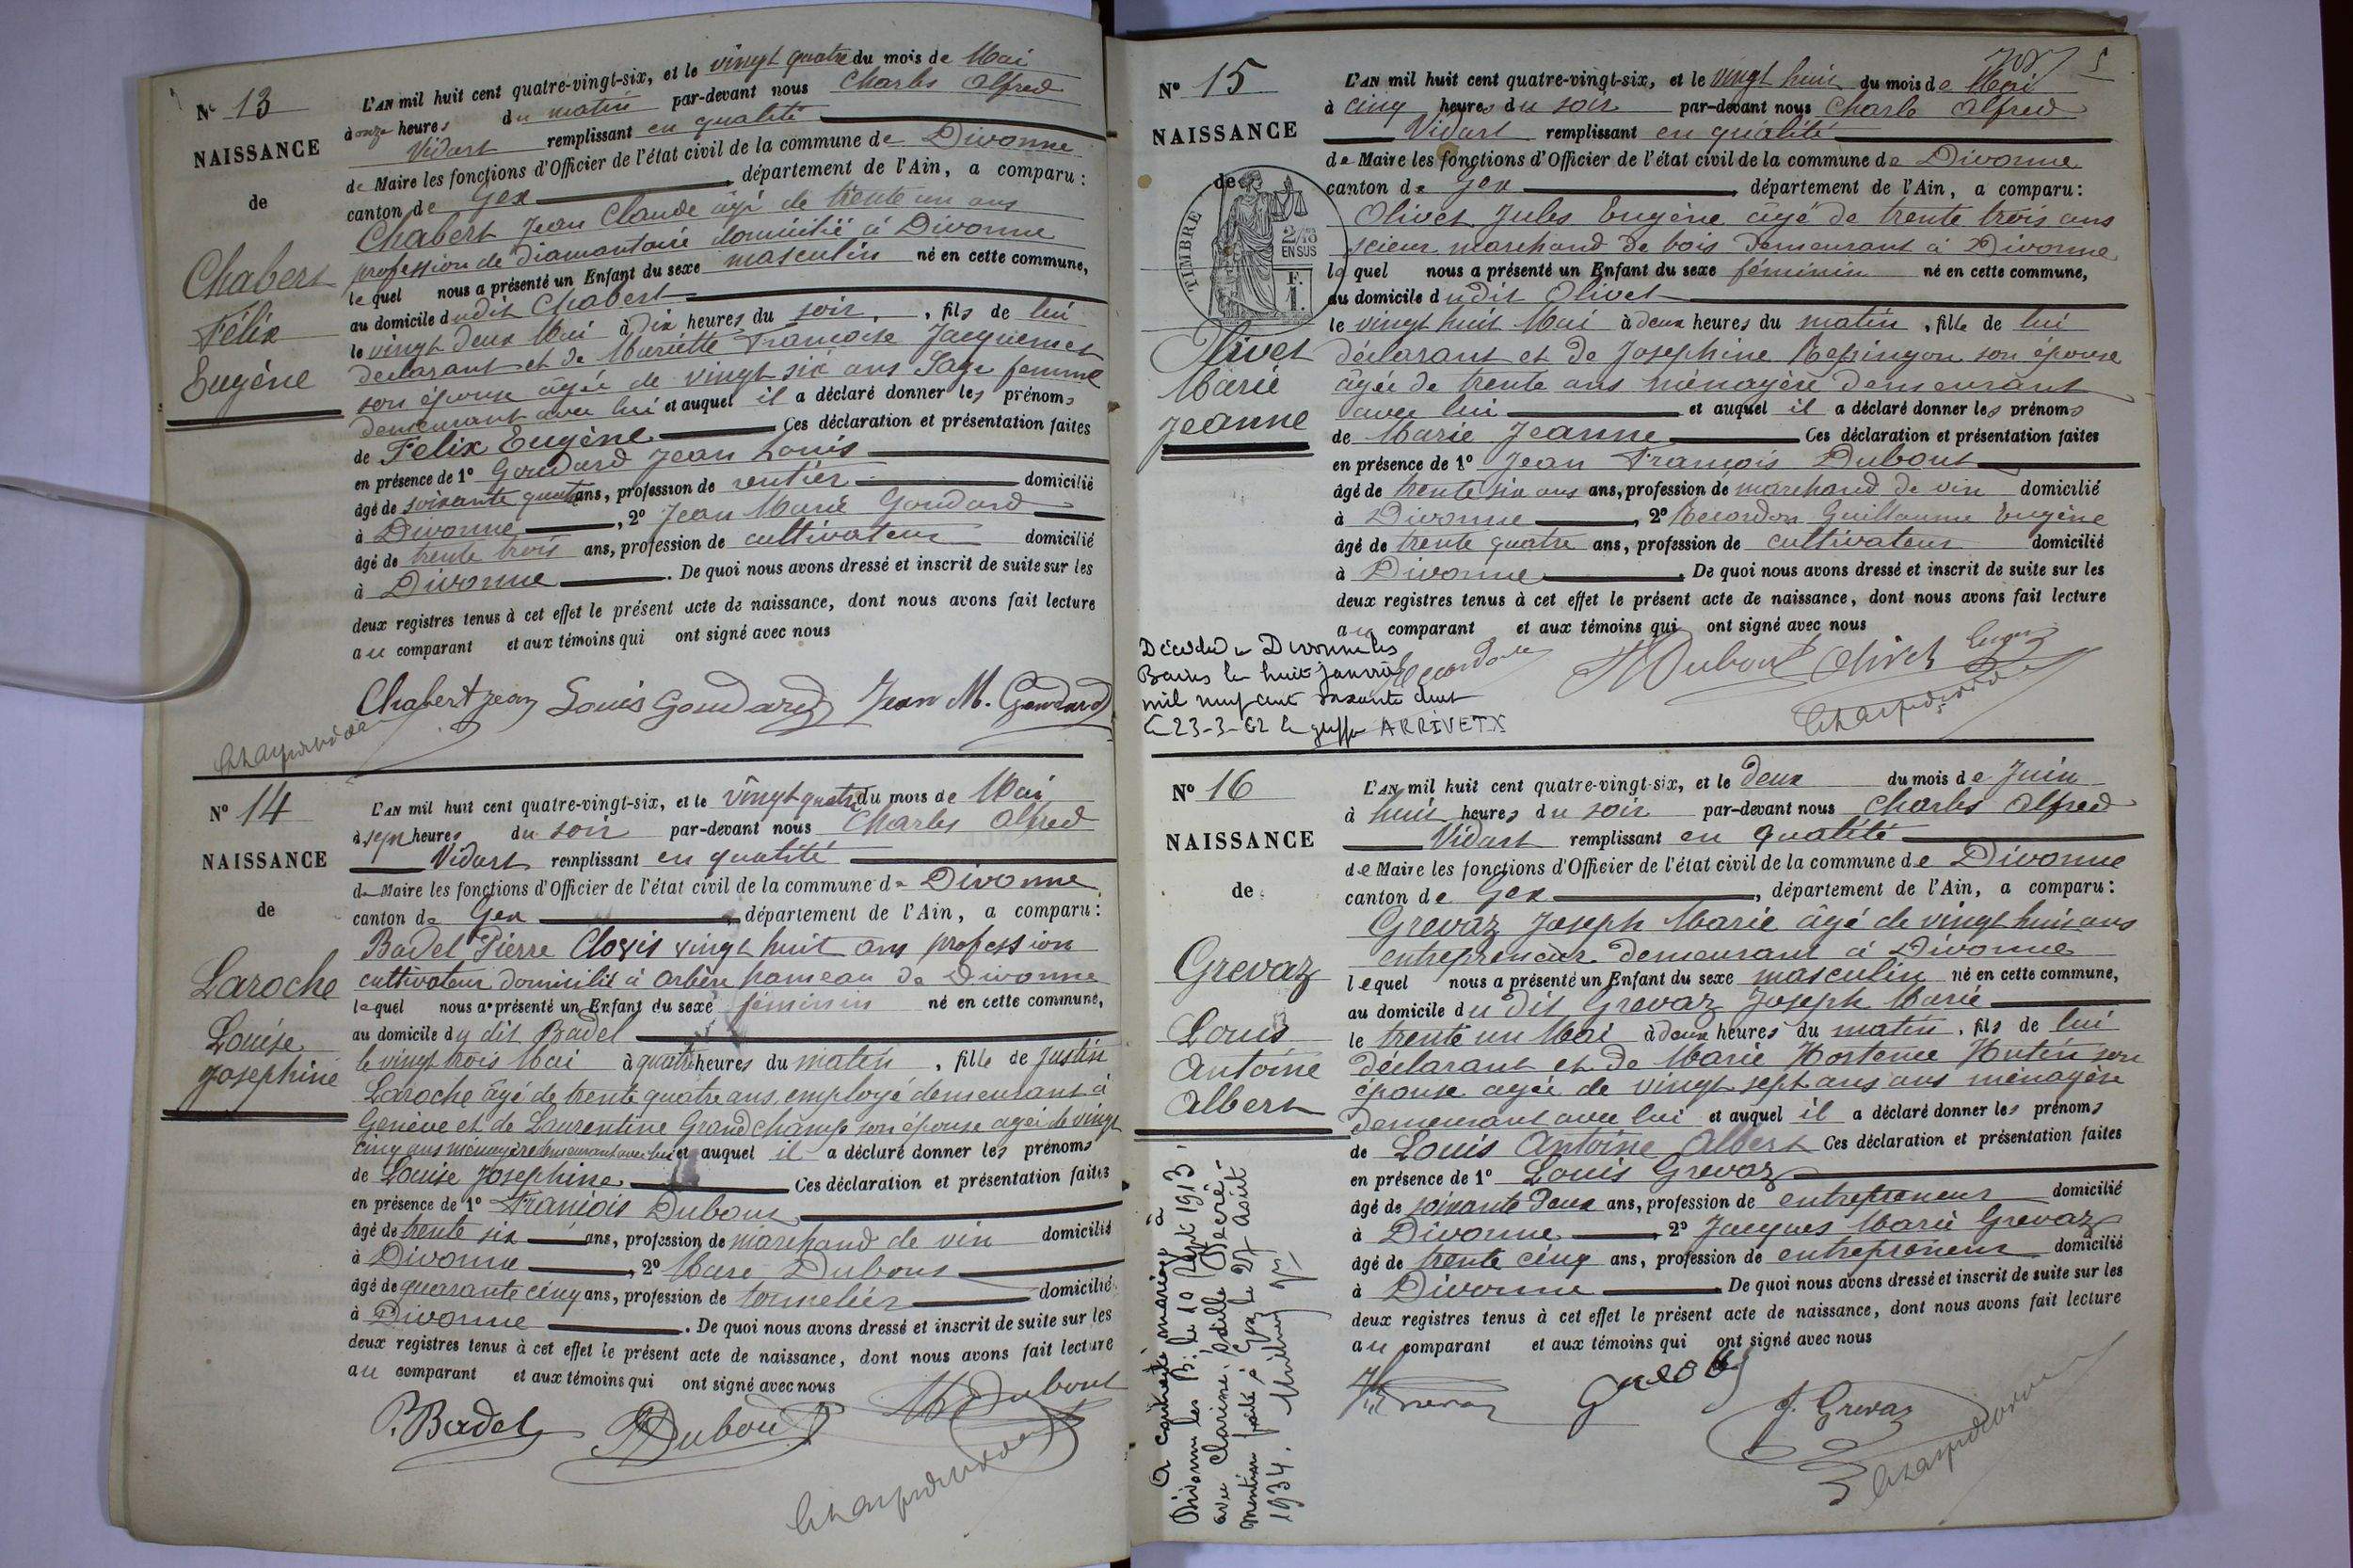 N° 13
NAISSANCE
de
Chabert
Félix
Eugène
L'AN mil huit cent quatre-vingt-six, et le vingt quatre du mois de Mai
à onze heures du matin par-devant nous Charles Alfred
Vidart remplissant en qualité
de Maire les fonctions d'Officier de l'état civil de la commune de Divonne
canton de Gex département de l'Ain, a comparu :
Chabert Jean Claude âgé de trente un ans
profession de Diamantaire domicilié à Divonne
lequel nous a présenté un Enfant du sexe masculin né en cette commune,
au domicile dudit Chabert
le vingt deux Mai à dix heures du soir, fils de lui
déclarant et de Mariette Francoise Jacquemet
son épouse agée de vingt six ans Sage femme
demeurant avec lui et auquel il a déclaré donner les prénoms
de Félix Eugène Ces déclaration et présentation faites
en présence de 1° Goudard Jean Louis
âgé de soixante quatre ans, profession de rentier domicilié
à Divonne, 2° Jean Marie Goudard
âgé de trente trois ans, profession de cultivateur domicilié
à Divonne. De quoi nous avons dressé et inscrit de suite sur les
deux registres tenus à cet effet le présent acte de naissance, dont nous avons fait lecture
au comparant et aux témoins qui ont signé avec nous
Chabert Jean Louis Goudard Jean M. Goudard
N° 14
NAISSANCE
de
Laroche
Louise
Josephine
L'AN mil huit cent quatre-vingt-six, et le vingt quatre du mois de Mai
à sept heures du soir par-devant nous Charles Alfred
Vidart remplissant en qualité
de Maire les fonctions d'Officier de l'état civil de la commune de Divonne
canton de Gex, département de l'Ain, a comparu :
Badel Pierre Clovis vingt huit ans profession
cultivateur domicilié à Arbère hameau de Divonne
lequel nous a présenté un Enfant du sexe féminin né en cette commune,
au domicile du dit Badel
le vingt trois Mai à quatre heures du matin, fille de Justin
Laroche âgé de trente quatre ans, employé demeurant à
Genève et de Laurentine Grandchamp son épouse agée de vingt
cinq ans ménagère demeurant avec lui et auquel il a déclaré donner les prénoms
de Louise Josephine Ces déclaration et présentation faites
en présence de 1° François Dubout
âgé de trente six ans, profession de marchand de vin domicilié
à Divonne, 2° Marc Dubout
âgé de quarante cinq ans, profession de tonnelier domicilié
à Divonne. De quoi nous avons dressé et inscrit de suite sur les
deux registres tenus à cet effet le présent acte de naissance, dont nous avons fait lecture
au comparant et aux témoins qui ont signé avec nous
P. Badel Dubout Dubout
5
N° 15
NAISSANCE
de
TIMBRE
2/10
EN SUS
F.
1.
Olivet
Marie
Jeanne
L'AN mil huit cent quatre-vingt-six, et le vingt huit du mois de Mai
à cinq heures du soir par-devant nous Charles Alfred
Vidart remplissant en qualité
de Maire les fonctions d'Officier de l'état civil de la commune de Divonne
canton de Gex, département de l'Ain, a comparu :
Olivet Jules Eugène âgé de trente trois ans
scieur marchand de bois demeurant à Divonne
lequel nous a présenté un Enfant du sexe féminin né en cette commune,
au domicile dudit Olivet
le vingt huit Mai à deux heures du matin, fille de lui
déclarant et de Josephine Repingon son épouse
âgée de trente ans ménagère demeurant
avec lui et auquel il a déclaré donner les prénoms
de Marie Jeanne Ces déclaration et présentation faites
en présence de 1° Jean François Dubout
âgé de trente six ans ans, profession de marchand de vin domicilié
à Divonne, 2° Recordon Guillaume Eugène
âgé de trente quatre ans, profession de cultivateur domicilié
à Divonne. De quoi nous avons dressé et inscrit de suite sur les
deux registres tenus à cet effet le présent acte de naissance, dont nous avons fait lecture
au comparant et aux témoins qui ont signé avec nous
Recordon Dubout Olivet Eugène
Décédée à Divonne les
Bains le huit janvier
mil neuf cent soixante deux
le 23-3-62 le greffier ARRIVETX
N° 16
NAISSANCE
de
Grevaz
Louis
Antoine
Albert
L'AN mil huit cent quatre-vingt-six, et le deux du mois de Juin
à huit heures du soir par-devant nous Charles Alfred
Vidart remplissant en qualité
de Maire les fonctions d'Officier de l'état civil de la commune de Divonne
canton de Gex, département de l'Ain, a comparu :
Grevaz Joseph Marie âgé de vingt huit ans
entrepreneur demeurant à Divonne
lequel nous a présenté un Enfant du sexe masculin né en cette commune,
au domicile du dit Grevaz Joseph Marie
le trente un Mai à deux heures du matin, fils de lui
déclarant et de Marie Hortense Hutin son
épouse agée de vingt sept ans ans ménagère
demeurant avec lui et auquel il a déclaré donner les prénoms
de Louis Antoine Albert Ces déclaration et présentation faites
en présence de 1° Louis Grevaz
âgé de soixante deux ans, profession de entrepreneur domicilié
à Divonne, 2° Jacques Marie Grevaz
âgé de trente cinq ans, profession de entrepreneur domicilié
à Divonne De quoi nous avons dressé et inscrit de suite sur les
deux registres tenus à cet effet le présent acte de naissance, dont nous avons fait lecture
au comparant et aux témoins qui ont signé avec nous
J. Grevaz
A contracté mariage à
Divonne les B. le 10 Sept 1913
avec Clarine Odille Decré
Mention faite à Gex le 27 Août
1934.